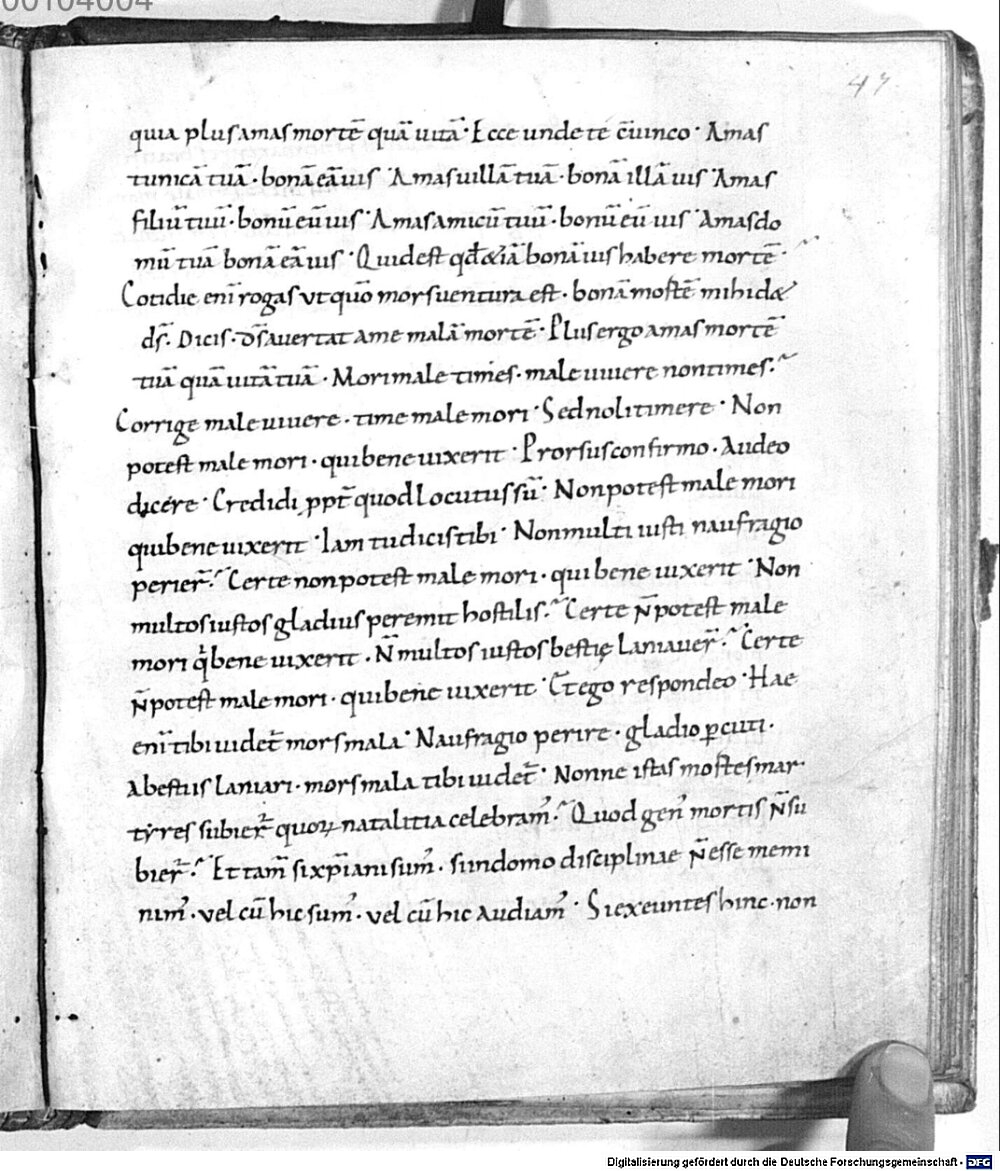 00104004
47
quia plus amas mortē quā uitā· Ecce unde te cūuinco· Amas
tunicā tuā· bonā eā uis· Amas uillā tuā· bonā illā uis· Amas
filiū tuū· bonū eū uis· Amas amicū tuū· bonū eū uis· Amas do
mū tuā bonā eā uis· Quid est qđ &iā bonā uis habere mortē·
Cotidie enī rogas ut quō mors uentura est· bonā mortē mihi d&
ds̄. Dicis· ds̄ auertat a me malā mortē· Plus ergo amas mortē
tuā quā uitā tuā· Mori male times· male uiuere non times·
Corrige male uiuere· time male mori· Sed noli timere· Non
potest male mori· qui bene uixerit· Prorsus confirmo· Audeo
dicere· Credidi ppt̄ quod locutus sū· Non potest male mori
qui bene uixerit· Iam tu dicis tibi· Non multi iusti naufragio
perier̄· Certe non potest male mori· qui bene uixerit· Non
multos iustos gladius peremit hostilis· Certe n̄ potest male
mori q̇ bene uixerit· N̄ multos iustos bestię laniauer̄· Certe
n̄ potest male mori· qui bene uixerit· Et ego respondeo· Hae
enī tibi uidet̄ mors mala· Naufragio perire· gladio ꝑcuti·
A bestiis laniari· mors mala tibi uidet̄· Nonne istas mortes mar
tyres subier̄ quoꝝ natalitia celebram᾽· Quod gen᾽ mortis n̄ su
bier̄· Et tam̄ si xp̄iani sum᾽· si in domo disciplinae n̄ esse memi
nim᾽· uel cū hic sum᾽· uel cū hic audiam᾽· Si exeuntes hinc· non
Digitalisierung gefördert durch die Deutsche Forschungsgemeinschaft - DFG